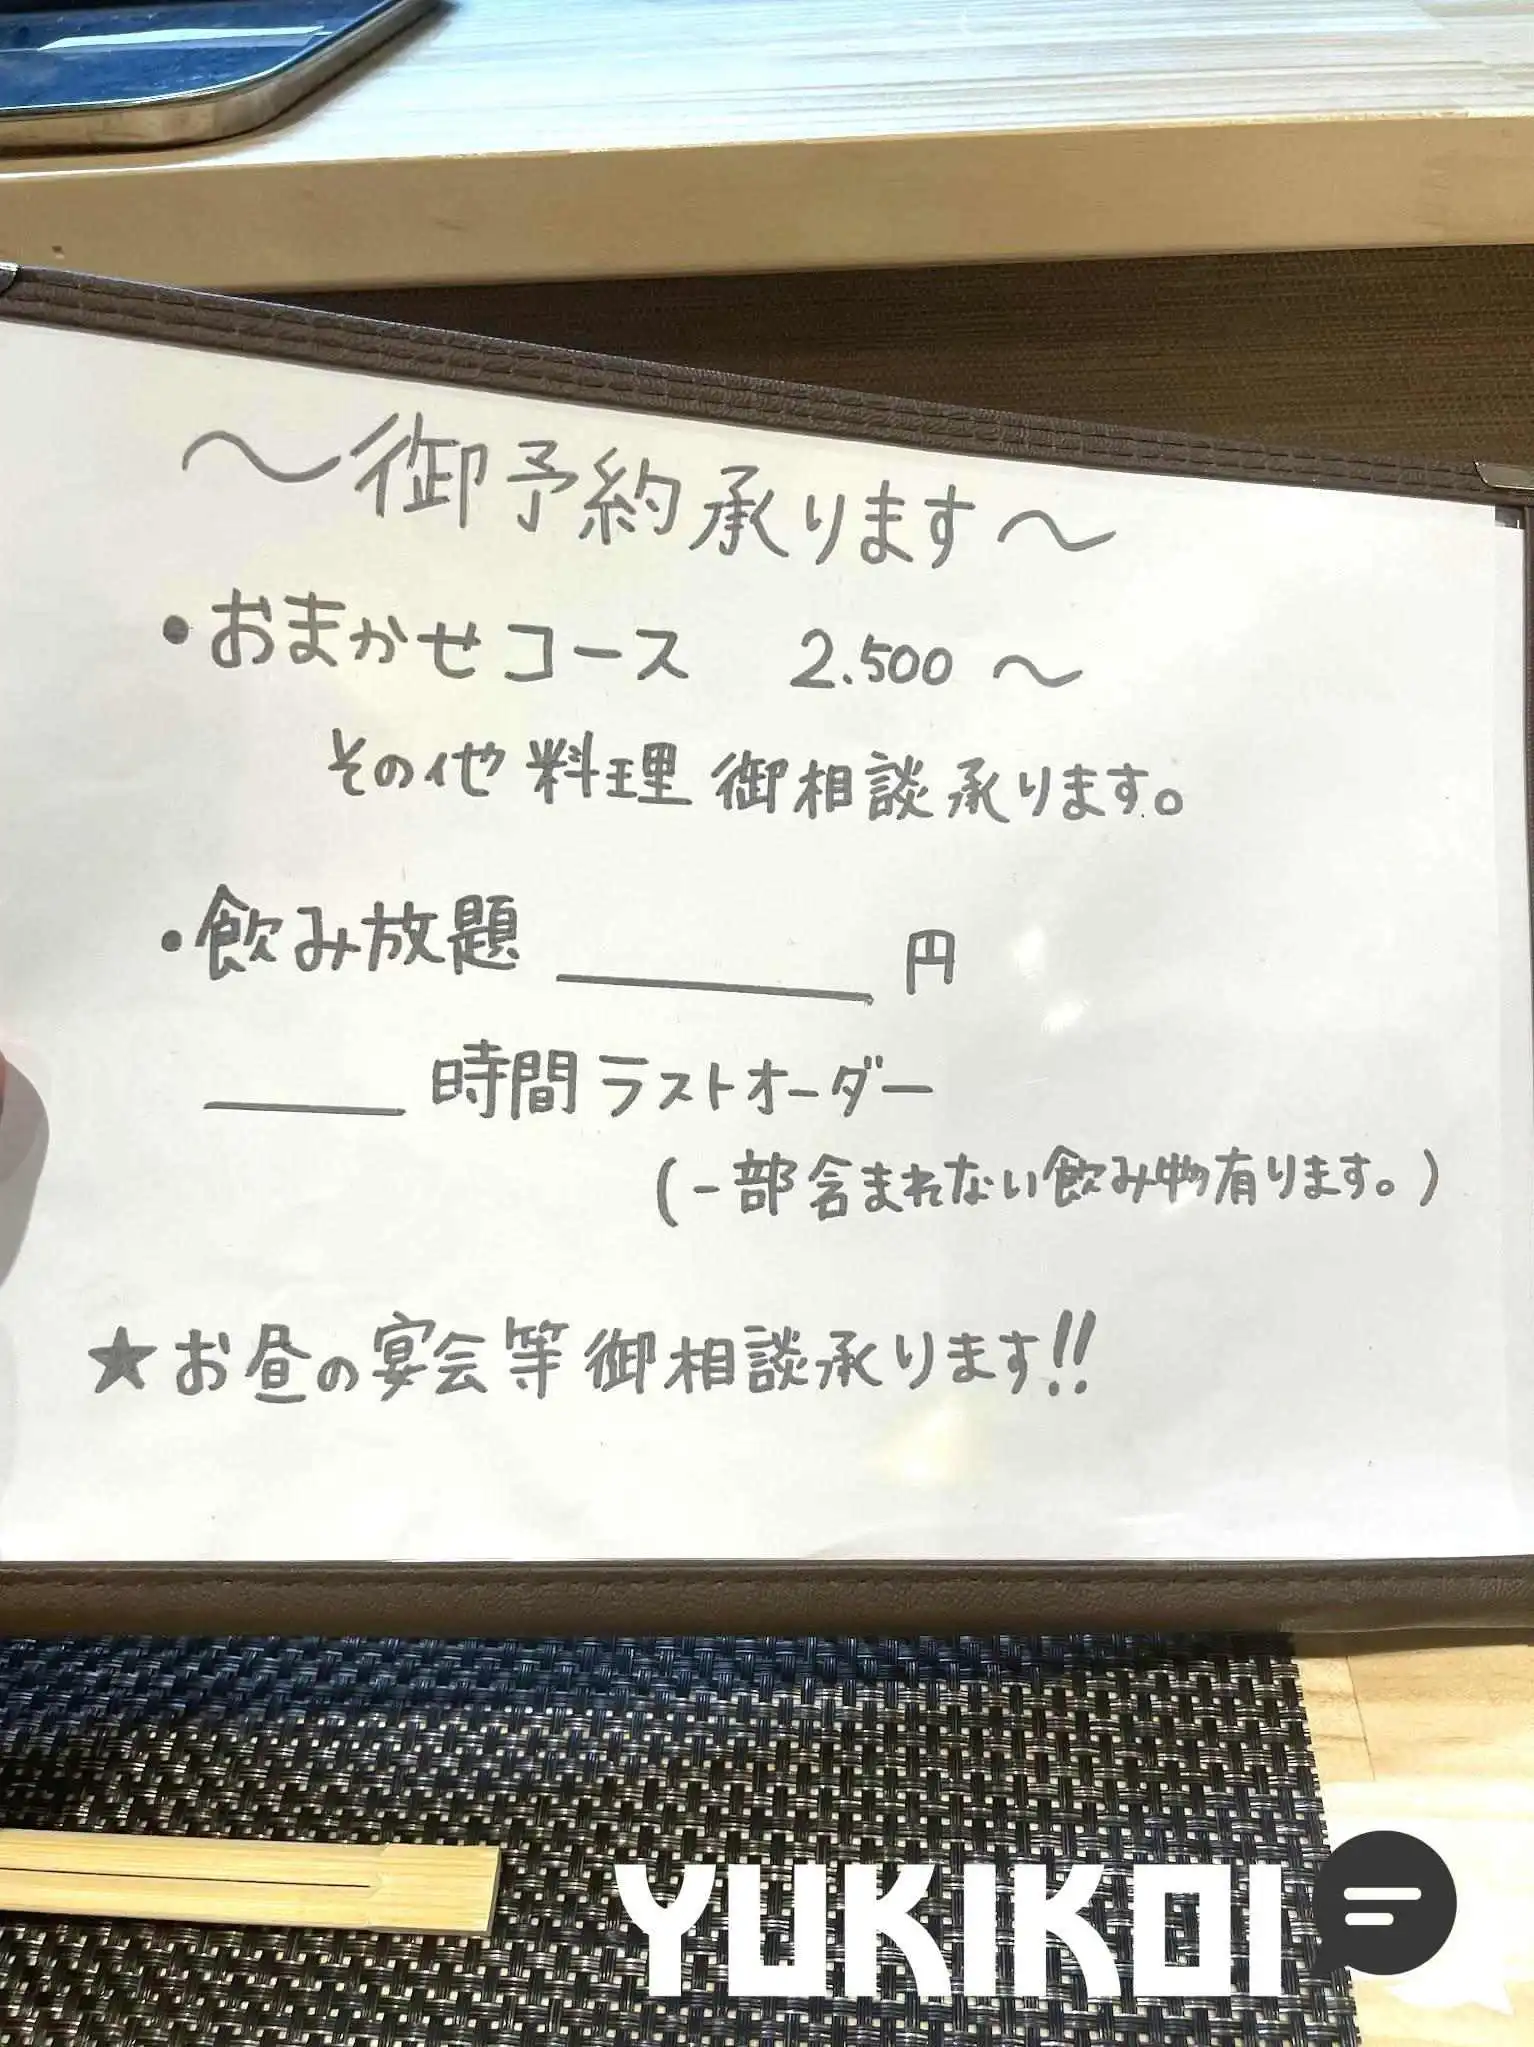 〜御予約承ります〜
・おまかせコース 2.500 〜
その他 料理 御相談承ります。
・飲み放題 ________ 円
_____ 時間 ラストオーダー
(一部含まれない飲み物有ります。)
★お昼の宴会等御相談承ります!!
YUKIKOI